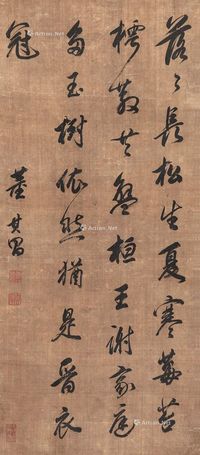 落落長松生夏寒莓苔
樗散共盤桓王謝家庭
多玉樹依然猶是晉衣
冠
董其昌